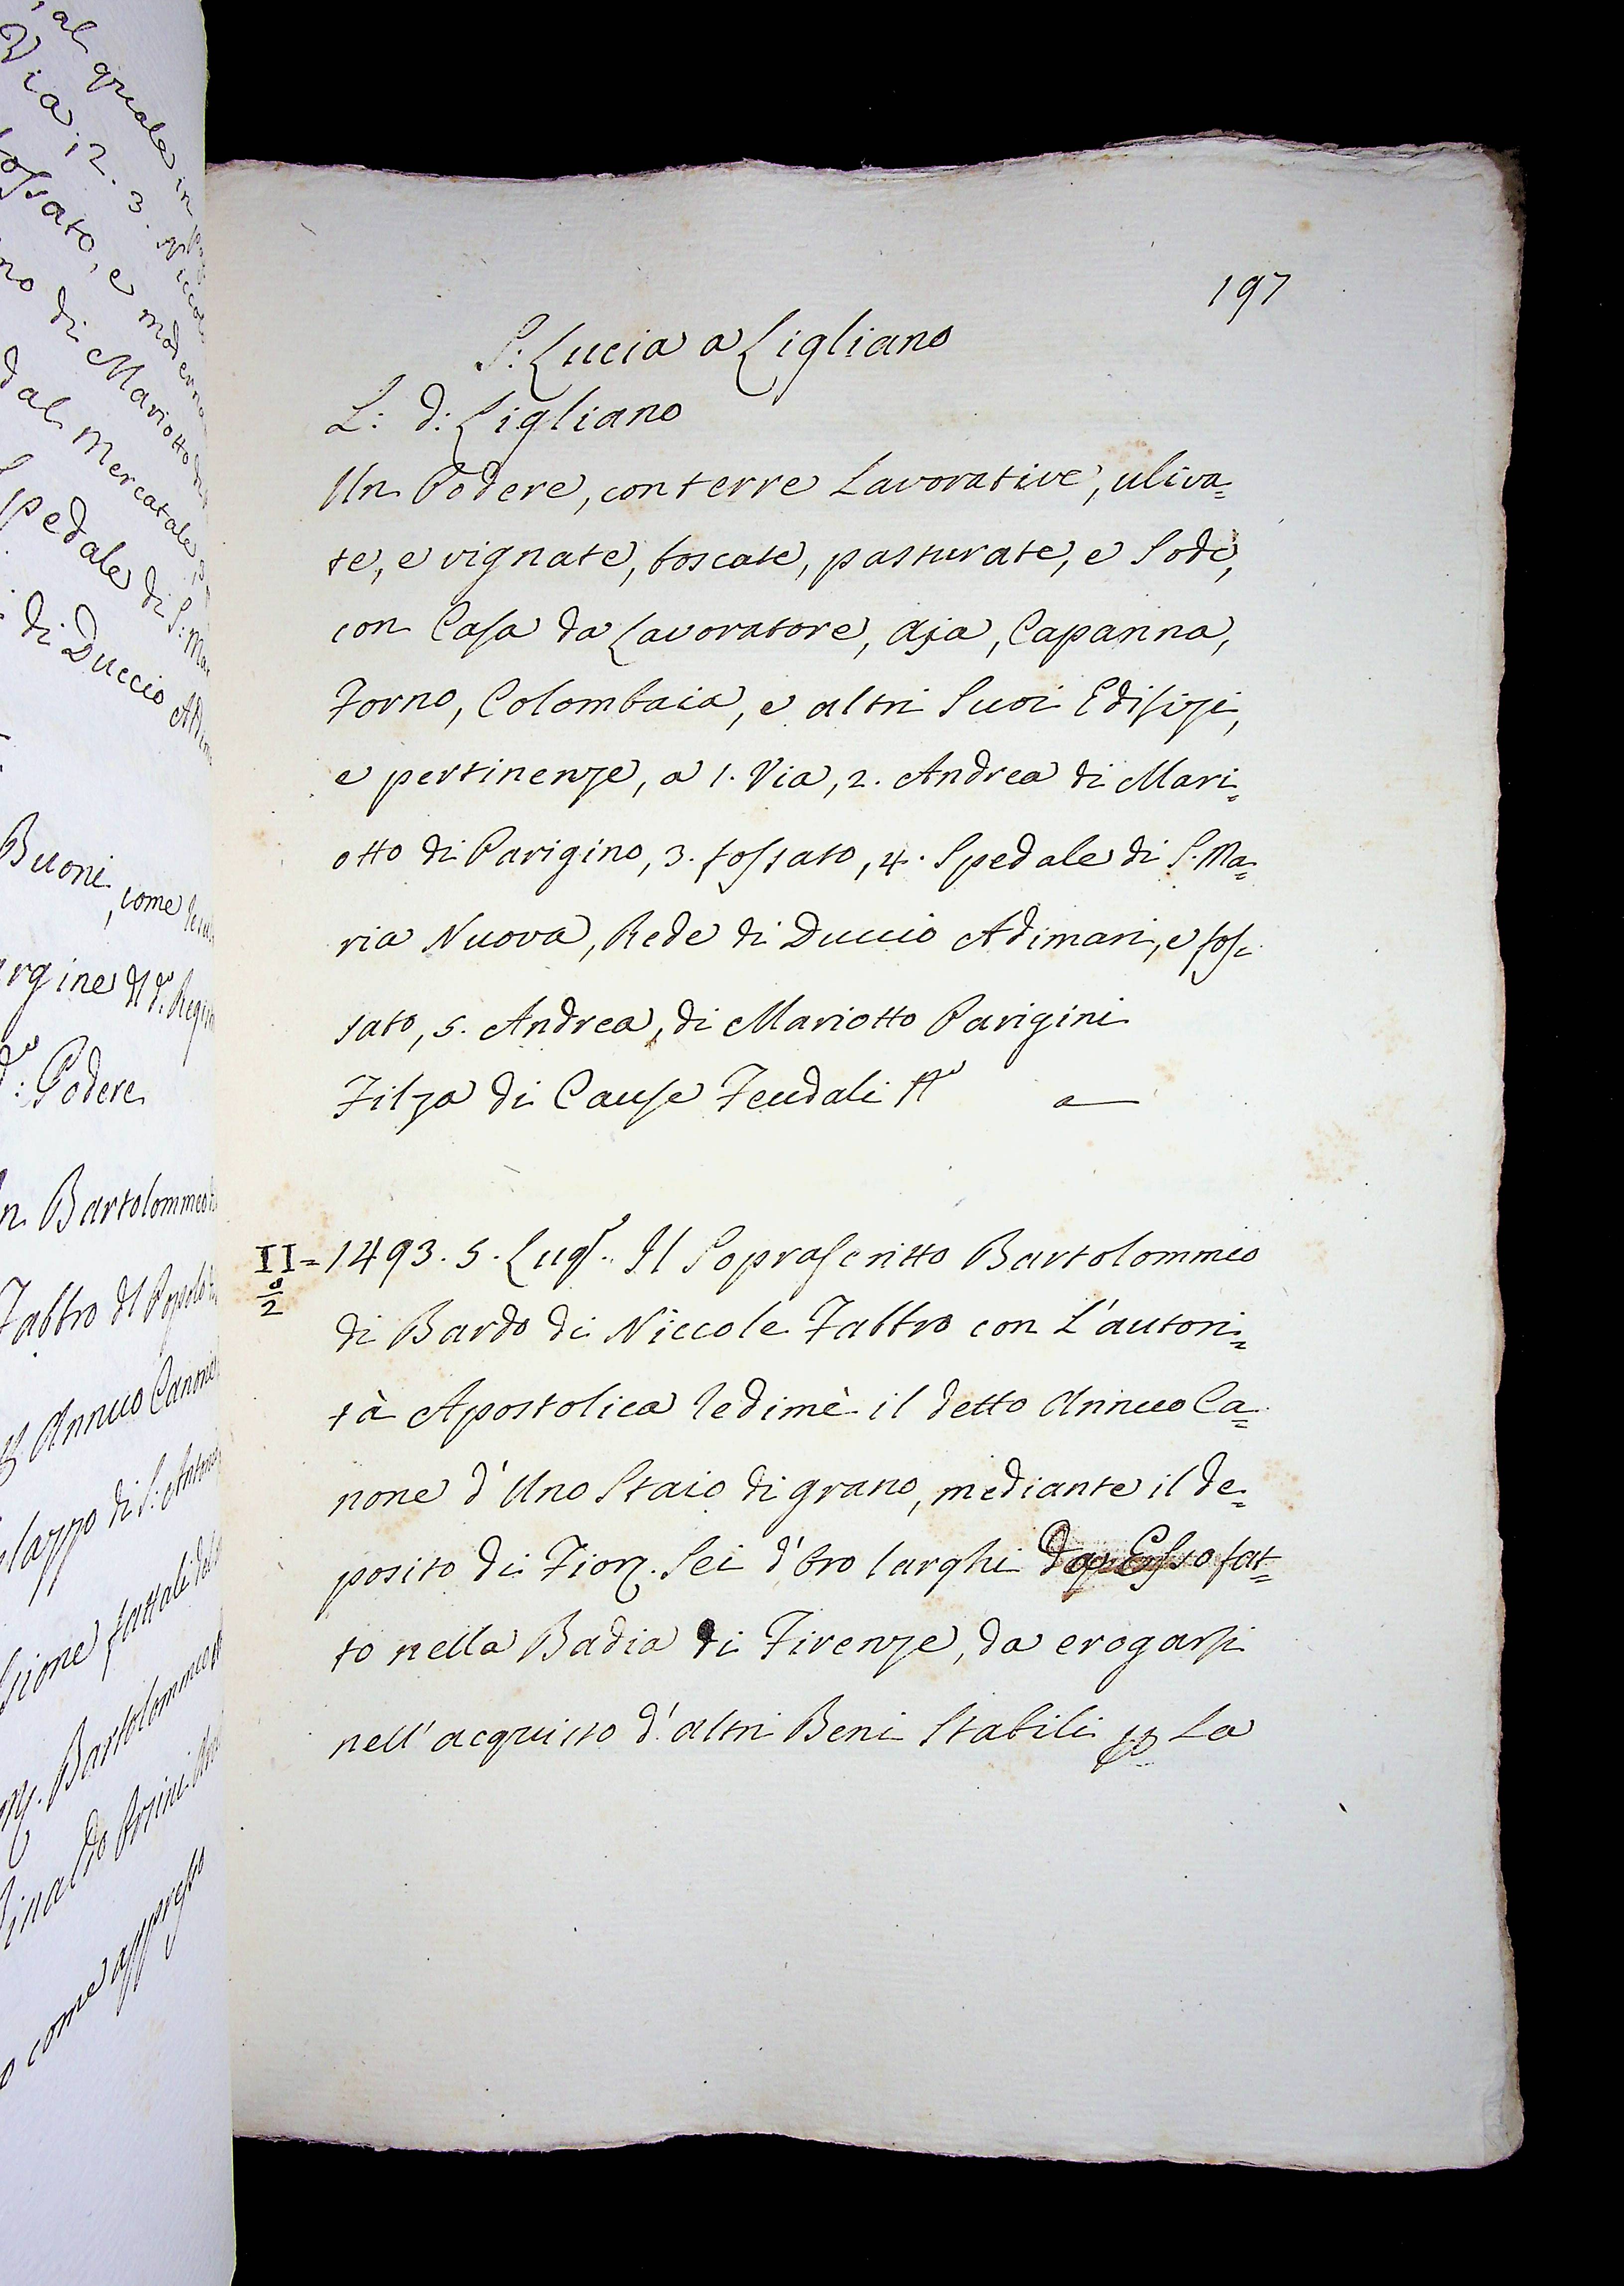 al quale in
Via, 2. 3. Niccol
fossato, e moderno
no di Mariotto di
dal Mercatale
Spedale di S: Ma
di Duccio Adim
Buoni, come
argine
d:o Podere
n. Bartolommeo
Fabbro del Popolo
Annuo Canone
lazzo di S: Antonio
sione fattali dal
Bartolommeo
inaldo Orsini
o come appresso
197
S: Lucia a Ligliano
L: d: Ligliano
Un Podere, con terre Lavorative, uliva=
te, e vignate, boscate, pasturate, e Sode,
con Casa da Lavoratore, Aja, Capanna,
Forno, Colombaia, e altri Suoi Edifizi,
e pertinenze, a 1. Via, 2. Andrea di Mari=
otto di Parigino, 3. fossato, 4. Spedale di S. Ma=
ria Nuova, Rede di Duccio Adimari, e fos=
sato, 5. Andrea, di Mariotto Parigini
Filza di Cause Feudali
II=1493. 5. Lug.o Il Soprascritto Bartolommeo
o/2
di Bardo di Niccolo Fabbro con L'autori=
tà Apostolica redimè il detto Annuo Ca=
none d'Uno Staio di grano, mediante il de=
posito di Fior. Sei d'Oro larghi da Esso fat=
to nella Badia di Firenze, da erogarsi
nell'acquisto d'altri Beni Stabili La